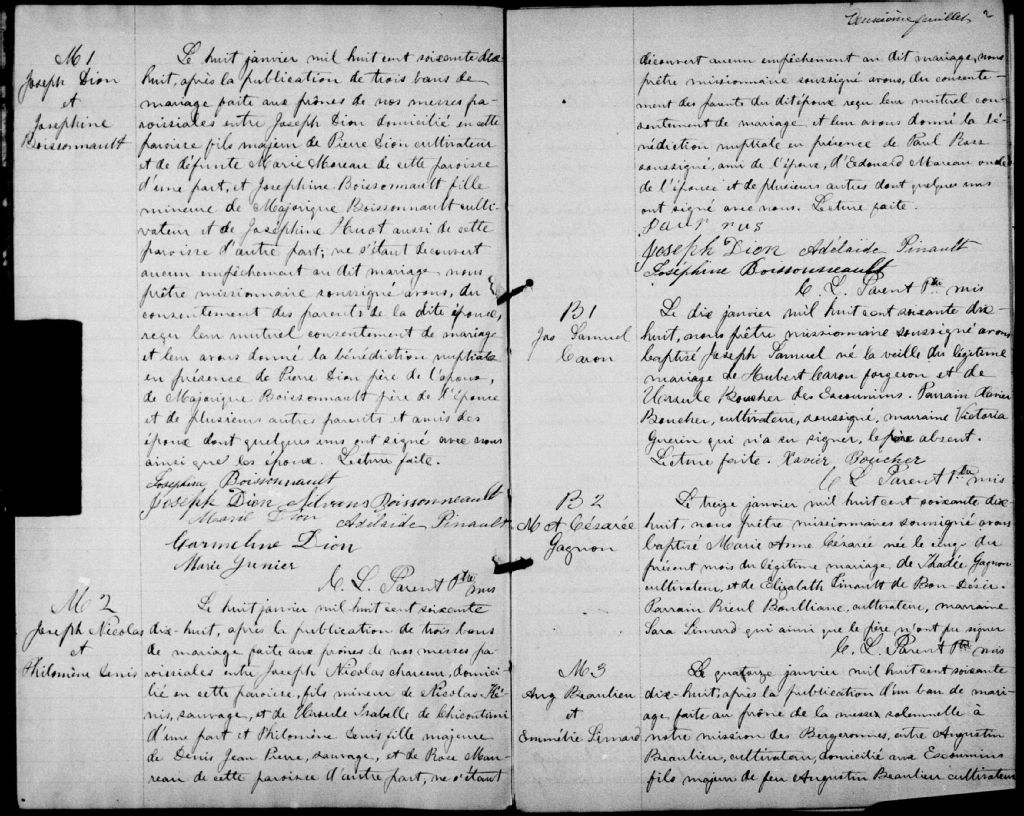 M 1
Joseph Dion
et
Josephine
Boissonnault
Le huit janvier mil huit cent soixante dix-
huit, après la publication de trois bans de
mariage faite aux prônes de nos messes pa-
roissiales entre Joseph Dion domicilié en cette
paroisse fils majeur de Pierre Dion cultivateur
et de défunte Marie Moreau de cette paroisse
d'une part, et Joséphine Boissonnault fille
mineure de Majorique Boissonnault culti-
vateur et de Joséphine Huot aussi de cette
paroisse d'autre part; ne s'étant decouvert
aucun empêchement au dit mariage nous
prêtre missionnaire soussigné avons, du
consentement des parents de la dite épouse,
reçu leur mutuel consentement de mariage
et leur avons donné la bénédiction nuptiale
en présence de Pierre Dion père de l'époux,
de Majorique Boissonnault père de l'épouse
et de plusieurs autres parents et amis des
époux dont quelques uns ont signé avec nous
ainsi que les époux. Lecture faite.
Josephine Boissonnault
Joseph Dion Boissonneault
Marie Dion Adélaide Pinault
Carmeline Dion
Marie Grenier
C. L. Parent Ptre
mis
M 2
Joseph Nicolas
et
Philomène Denis
Le huit janvier mil huit cent soixante
dix-huit, après la publication de trois bans
de mariage faite aux prônes de nos messes pa-
roissiales entre Joseph Nicolas chasseur, domici-
lié en cette paroisse, fils mineur de Nicolas
sauvage, et de Ursule Isabelle de Chicoutimi
d'une part et Philomène Denis fille majeure
de Denis Jean Pierre, sauvage, et de Rose Mau-
reau de cette paroisse d'autre part, ne s'étant
Deuxième feuillet 2
découvert aucun empêchement au dit mariage, nous
prêtre missionnaire soussigné avons, du consente-
ment des parents du dit époux reçu leur mutuel con-
sentement de mariage et leur avons donné la bé-
nédiction nuptiale en présence de Paul Ross
soussigné, ami de l'époux, d'Edouard Moreau oncle
de l'épouse et de plusieurs autres dont quelques uns
ont signé avec nous. Lecture faite.
Paul rus
Joseph Dion Adélaide Pinault
Joséphine Boissonneault
C. L. Parent Ptre mis
B 1
Jos Samuel
Caron
Le dix janvier mil huit cent soixante dix-
huit, nous prêtre missionnaire soussigné avons
baptisé Joseph Samuel né la veille du légitime
mariage de Hubert Caron forgeron et de
Ursule Boucher des Escoumins. Parrain Xavier
Boucher, cultivateur, soussigné, marraine Victoria
Guerin qui n'a su signer, le père absent.
Lecture faite. Xavier Boucher
C L Parent Ptre mis
B 2
M A Césarée
Gagnon
Le treize janvier mil huit cent soixante dix-
huit, nous prêtre missionnaire soussigné avons
baptisé Marie Anne Césarée née le cinq du
présent mois du légitime mariage de Thadée Gagnon
cultivateur, et de Elizabeth Pinault de Bon Désir.
Parrain Boulliane, cultivateur, marraine
Sara Simard qui ainsi que le père n'ont pu signer
C. L. Parent Ptre mis
M 3
Aug Beaulieu
et
Emmélie Simard
Le quatorze janvier mil huit cent soixante
dix-huit, après la publication d'un ban de mari-
age faite au prône de la messe solemnelle à
notre mission des Bergeronnes, entre Augustin
Beaulieu, cultivateur, domicilié aux Escoumins
fils majeur de feu Augustin Beaulieu cultivateur